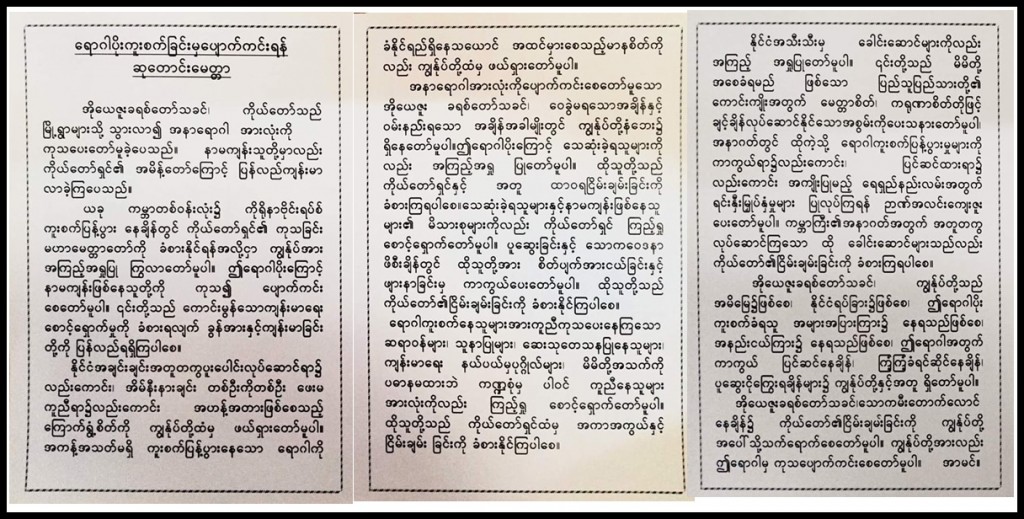 ရောဂါပိုးကူးစက်ခြင်းမှပျောက်ကင်းရန်
ဆုတောင်းမေတ္တာ
အိုယေဇူးခရစ်တော်သခင်၊ ကိုယ်တော်သည်
မြို့ရွာများသို့ သွားလာ၍ အနာရောဂါ အားလုံးကို
ကုသပေးတော်မူခဲ့ပေသည်။ နာမကျန်းသူတို့မှာလည်း
ကိုယ်တော်ရှင်၏ အမိန့်တော်ကြောင့် ပြန်လည်ကျန်းမာ
လာခဲ့ကြပေသည်။
ယခု ကမ္ဘာတစ်ဝန်းလုံး၌ ကိုရိုနာဗိုင်းရပ်စ်
ကူးစက်ပြန့်ပွား နေချိန်တွင် ကိုယ်တော်ရှင်၏ ကုသခြင်း
မဟာမေတ္တာတော်ကို ခံစားနိုင်ရန်အလို့ငှာ ကျွန်ုပ်အား
အကြည့်အရှုပြု ကြွလာတော်မူပါ။ ဤရောဂါပိုးကြောင့်
နာမကျန်းဖြစ်နေသူတို့ကို ကုသ၍ ပျောက်ကင်း
စေတော်မူပါ။ ၎င်းတို့သည် ကောင်းမွန်သောကျန်းမာရေး
စောင့်ရှောက်မှုကို ခံစားရလျက် ခွန်အားနှင့်ကျန်းမာခြင်း
တို့ကို ပြန်လည်ရရှိကြပါစေ။
နိုင်ငံအချင်းချင်းအတူတကွပူးပေါင်းလုပ်ဆောင်ရာ၌
လည်းကောင်း၊ အိမ်နီးနားချင်း တစ်ဦးကိုတစ်ဦး ဖေးမ
ကူညီရာ၌လည်းကောင်း အဟန့်အတားဖြစ်စေသည့်
ကြောက်ရွံ့စိတ်ကို ကျွန်ုပ်တို့ထံမှ ဖယ်ရှားတော်မူပါ။
အကန့်အသတ်မရှိ ကူးစက်ပြန့်ပွားနေသော ရောဂါကို
ခံနိုင်ရည်ရှိနေသယောင် အထင်မှားစေသည့်မာနစိတ်ကို
လည်း ကျွန်ုပ်တို့ထံမှ ဖယ်ရှားတော်မူပါ။
အနာရောဂါအားလုံးကိုပျောက်ကင်းစေတော်မူသော
အိုယေဇူး ခရစ်တော်သခင်၊ ဝေခွဲမရသောအချိန်နှင့်
ဝမ်းနည်းရသော အချိန်အခါမျိုးတွင် ကျွန်ုပ်တို့နံဘေး၌
ရှိနေတော်မူပါ။ဤရောဂါပိုးကြောင့် သေဆုံးခဲ့ရသူများကို
လည်း အကြည့်အရှု ပြုတော်မူပါ။ ထိုသူတို့သည်
ကိုယ်တော်ရှင်နှင့် အတူ ထာဝရငြိမ်းချမ်းခြင်းကို
ခံစားကြရပါစေ။သေဆုံးခဲ့ရသူများနှင့်နာမကျန်းဖြစ်နေသူ
များ၏ မိသားစုများကိုလည်း ကိုယ်တော်ရှင် ကြည့်ရှု
စောင့်ရှောက်တော်မူပါ။ ပူဆွေးခြင်းနှင့် သောကဝေဒနာ
ဖိစီးချိန်တွင် ထိုသူတို့အား စိတ်ပျက်အားငယ်ခြင်းနှင့်
ဖျားနာခြင်းမှ ကာကွယ်ပေးတော်မူပါ။ ထိုသူတို့သည်
ကိုယ်တော်၏ငြိမ်းချမ်းခြင်းကို ခံစားနိုင်ကြပါစေ။
ရောဂါကူးစက်နေသူများအားကူညီကုသပေးနေကြသော
ဆရာဝန်များ၊ သူနာပြုများ၊ ဆေးသုတေသနပြုနေသူများ၊
ကျန်းမာရေး နယ်ပယ်မှပုဂ္ဂိုလ်များ၊ မိမိတို့အသက်ကို
ပဓာနမထားဘဲ ကဏ္ဍစုံမှ ပါဝင် ကူညီနေသူများ
အားလုံးကိုလည်း ကြည့်ရှု စောင့်ရှောက်တော်မူပါ။
ထိုသူတို့သည် ကိုယ်တော်ရှင်ထံမှ အကာအကွယ်နှင့်
ငြိမ်းချမ်း ခြင်းကို ခံစားနိုင်ကြပါစေ။
နိုင်ငံအသီးသီးမှ ခေါင်းဆောင်များကိုလည်း
အကြည့် အရှုပြုတော်မူပါ။ ၎င်းတို့သည် မိမိတို့
အစေခံရမည် ဖြစ်သော ပြည်သူပြည်သားတို့၏
ကောင်းကျိုးအတွက် မေတ္တာစိတ်၊ ကရုဏာစိတ်တို့ဖြင့်
ချင့်ချိန်လုပ်ဆောင်နိုင်သောအစွမ်းကိုပေးသနားတော်မူပါ၊
အနာဂတ်တွင် ထိုကဲ့သို့ ရောဂါကူးစက်ပြန့်ပွားမှုများကို
ကာကွယ်ရာ၌လည်းကောင်း၊ ပြင်ဆင်ထားရာ၌
လည်းကောင်း အကျိုးပြုမည့် ရေရှည်နည်းလမ်းအတွက်
ရင်းနှီးမြှုပ်နှံမှုများ ပြုလုပ်ကြရန် ဉာဏ်အလင်းကျေးဇူး
ပေးတော်မူပါ။ ကမ္ဘာကြီး၏အနာဂတ်အတွက် အတူတကွ
လုပ်ဆောင်ကြသော ထို ခေါင်းဆောင်များသည်လည်း
ကိုယ်တော်၏ငြိမ်းချမ်းခြင်းကို ခံစားကြရပါစေ။
အိုယေဇူးခရစ်တော်သခင်၊ ကျွန်ုပ်တို့သည်
အမိမြေ၌ဖြစ်စေ၊ နိုင်ငံရပ်ခြား၌ဖြစ်စေ၊ ဤရောဂါပိုး
ကူးစက်ခံရသူ အများအပြားကြား၌ နေရသည်ဖြစ်စေ၊
အနည်းငယ်ကြား၌ နေရသည်ဖြစ်စေ၊ ဤရောဂါအတွက်
ကာကွယ် ပြင်ဆင်နေချိန်၊ ကြံ့ကြံ့ခံရင်ဆိုင်နေချိန်၊
ပူဆွေးငိုကြွေးရချိန်များ၌ ကျွန်ုပ်တို့နှင့်အတူ ရှိတော်မူပါ။
အိုယေဇူးခရစ်တော်သခင်၊သောကမီးတောက်လောင်
နေချိန်၌ ကိုယ်တော်၏ငြိမ်းချမ်းခြင်းကို ကျွန်ုပ်တို့
အပေါ်သို့သက်ရောက်စေတော်မူပါ။ ကျွန်ုပ်တို့အားလည်း
ဤရောဂါမှ ကုသပျောက်ကင်းစေတော်မူပါ။ အာမင်။